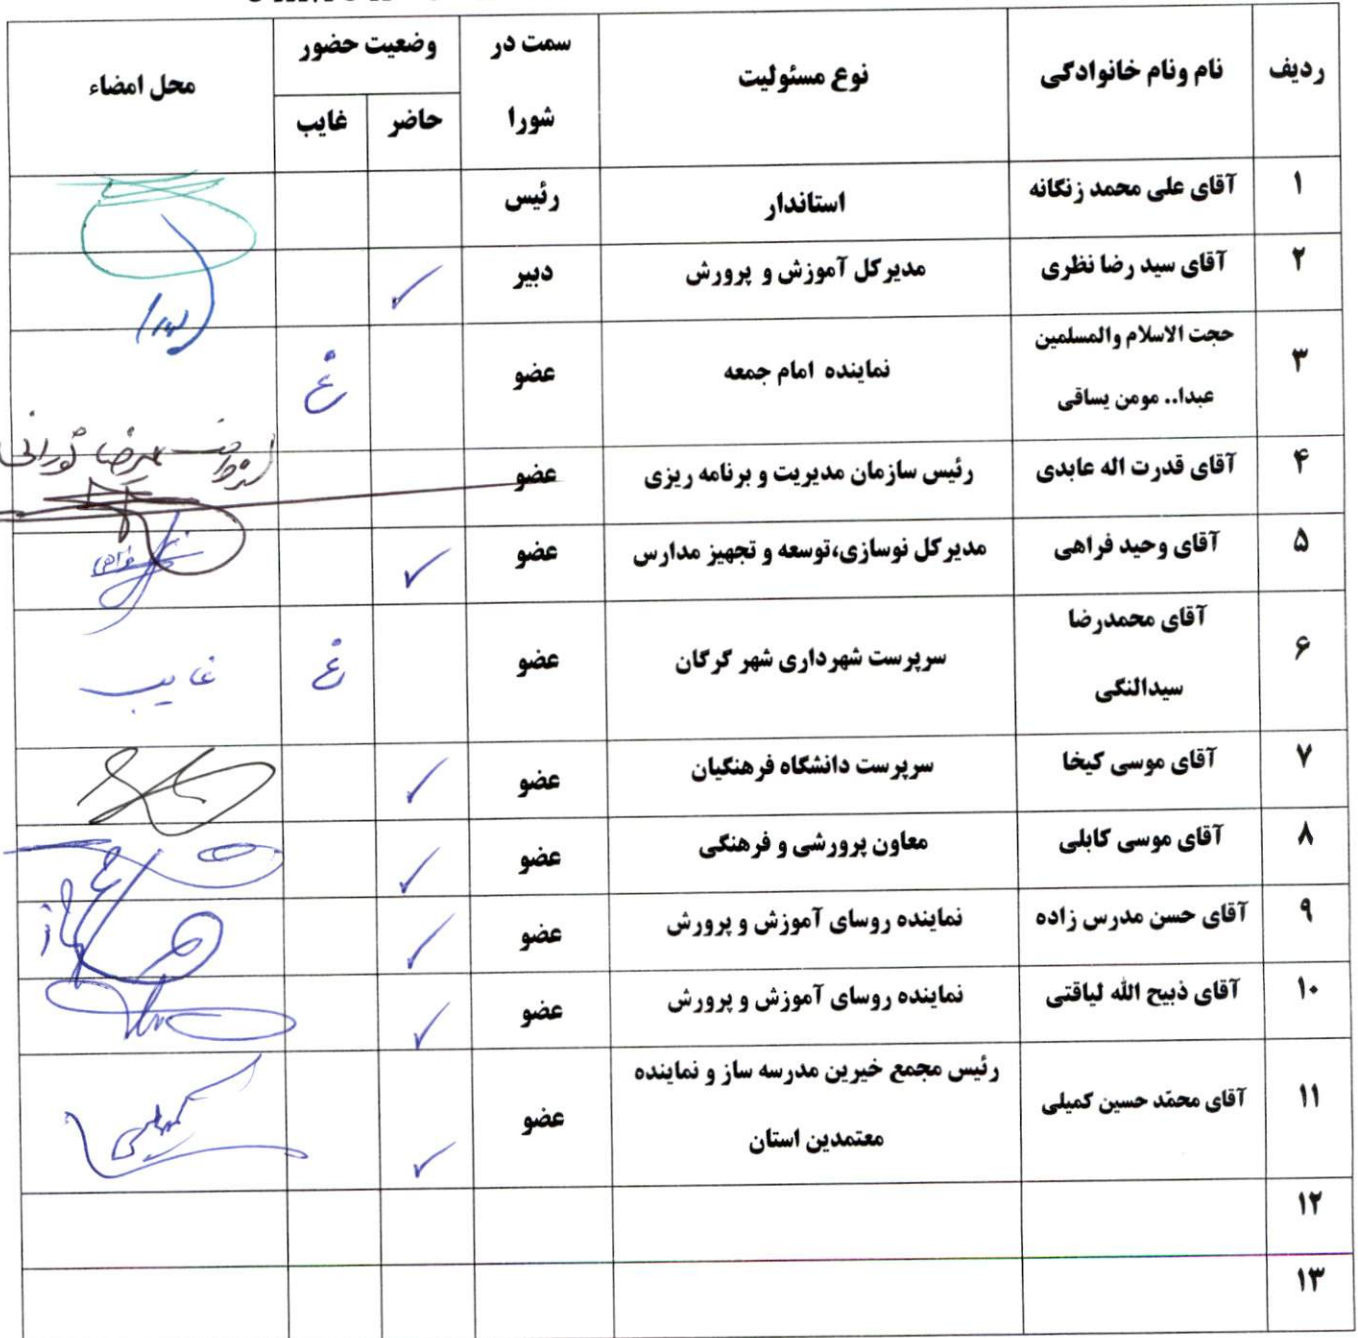 ردیف
نام ونام خانوادگی
نوع مسئولیت
سمت در
شورا
وضعیت حضور
حاضر
غایب
محل امضاء
۱
آقای علی محمد زنگانه
استاندار
رئیس
۲
آقای سید رضا نظری
مدیرکل آموزش و پرورش
دبیر
۳
حجت الاسلام والمسلمین
عبدا.. مومن یساقی
نماینده امام جمعه
عضو
غ
۴
آقای قدرت اله عابدی
رئیس سازمان مدیریت و برنامه ریزی
عضو
علیرضا نورانی
۵
آقای وحید فراهی
مدیرکل نوسازی،توسعه و تجهیز مدارس
عضو
فراهی
۶
آقای محمدرضا
سیدالنگی
سرپرست شهرداری شهر گرگان
عضو
غ
غایب
۷
آقای موسی کیخا
سرپرست دانشگاه فرهنگیان
عضو
۸
آقای موسی کابلی
معاون پرورشی و فرهنگی
عضو
۹
آقای حسن مدرس زاده
نماینده روسای آموزش و پرورش
عضو
۱۰
آقای ذبیح الله لیاقتی
نماینده روسای آموزش و پرورش
عضو
۱۱
آقای محمّد حسین کمیلی
رئیس مجمع خیرین مدرسه ساز و نماینده
معتمدین استان
عضو
کمیلی
۱۲
۱۳